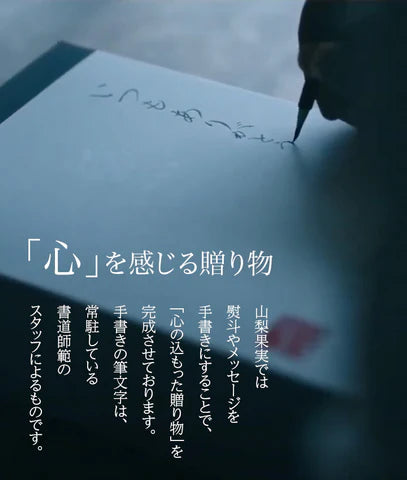 「心」を感じる贈り物
山梨果実では
熨斗やメッセージを
手書きにすることで、
「心の込もった贈り物」を
完成させております。
手書きの筆文字は、
常駐している
書道師範の
スタッフによるものです。